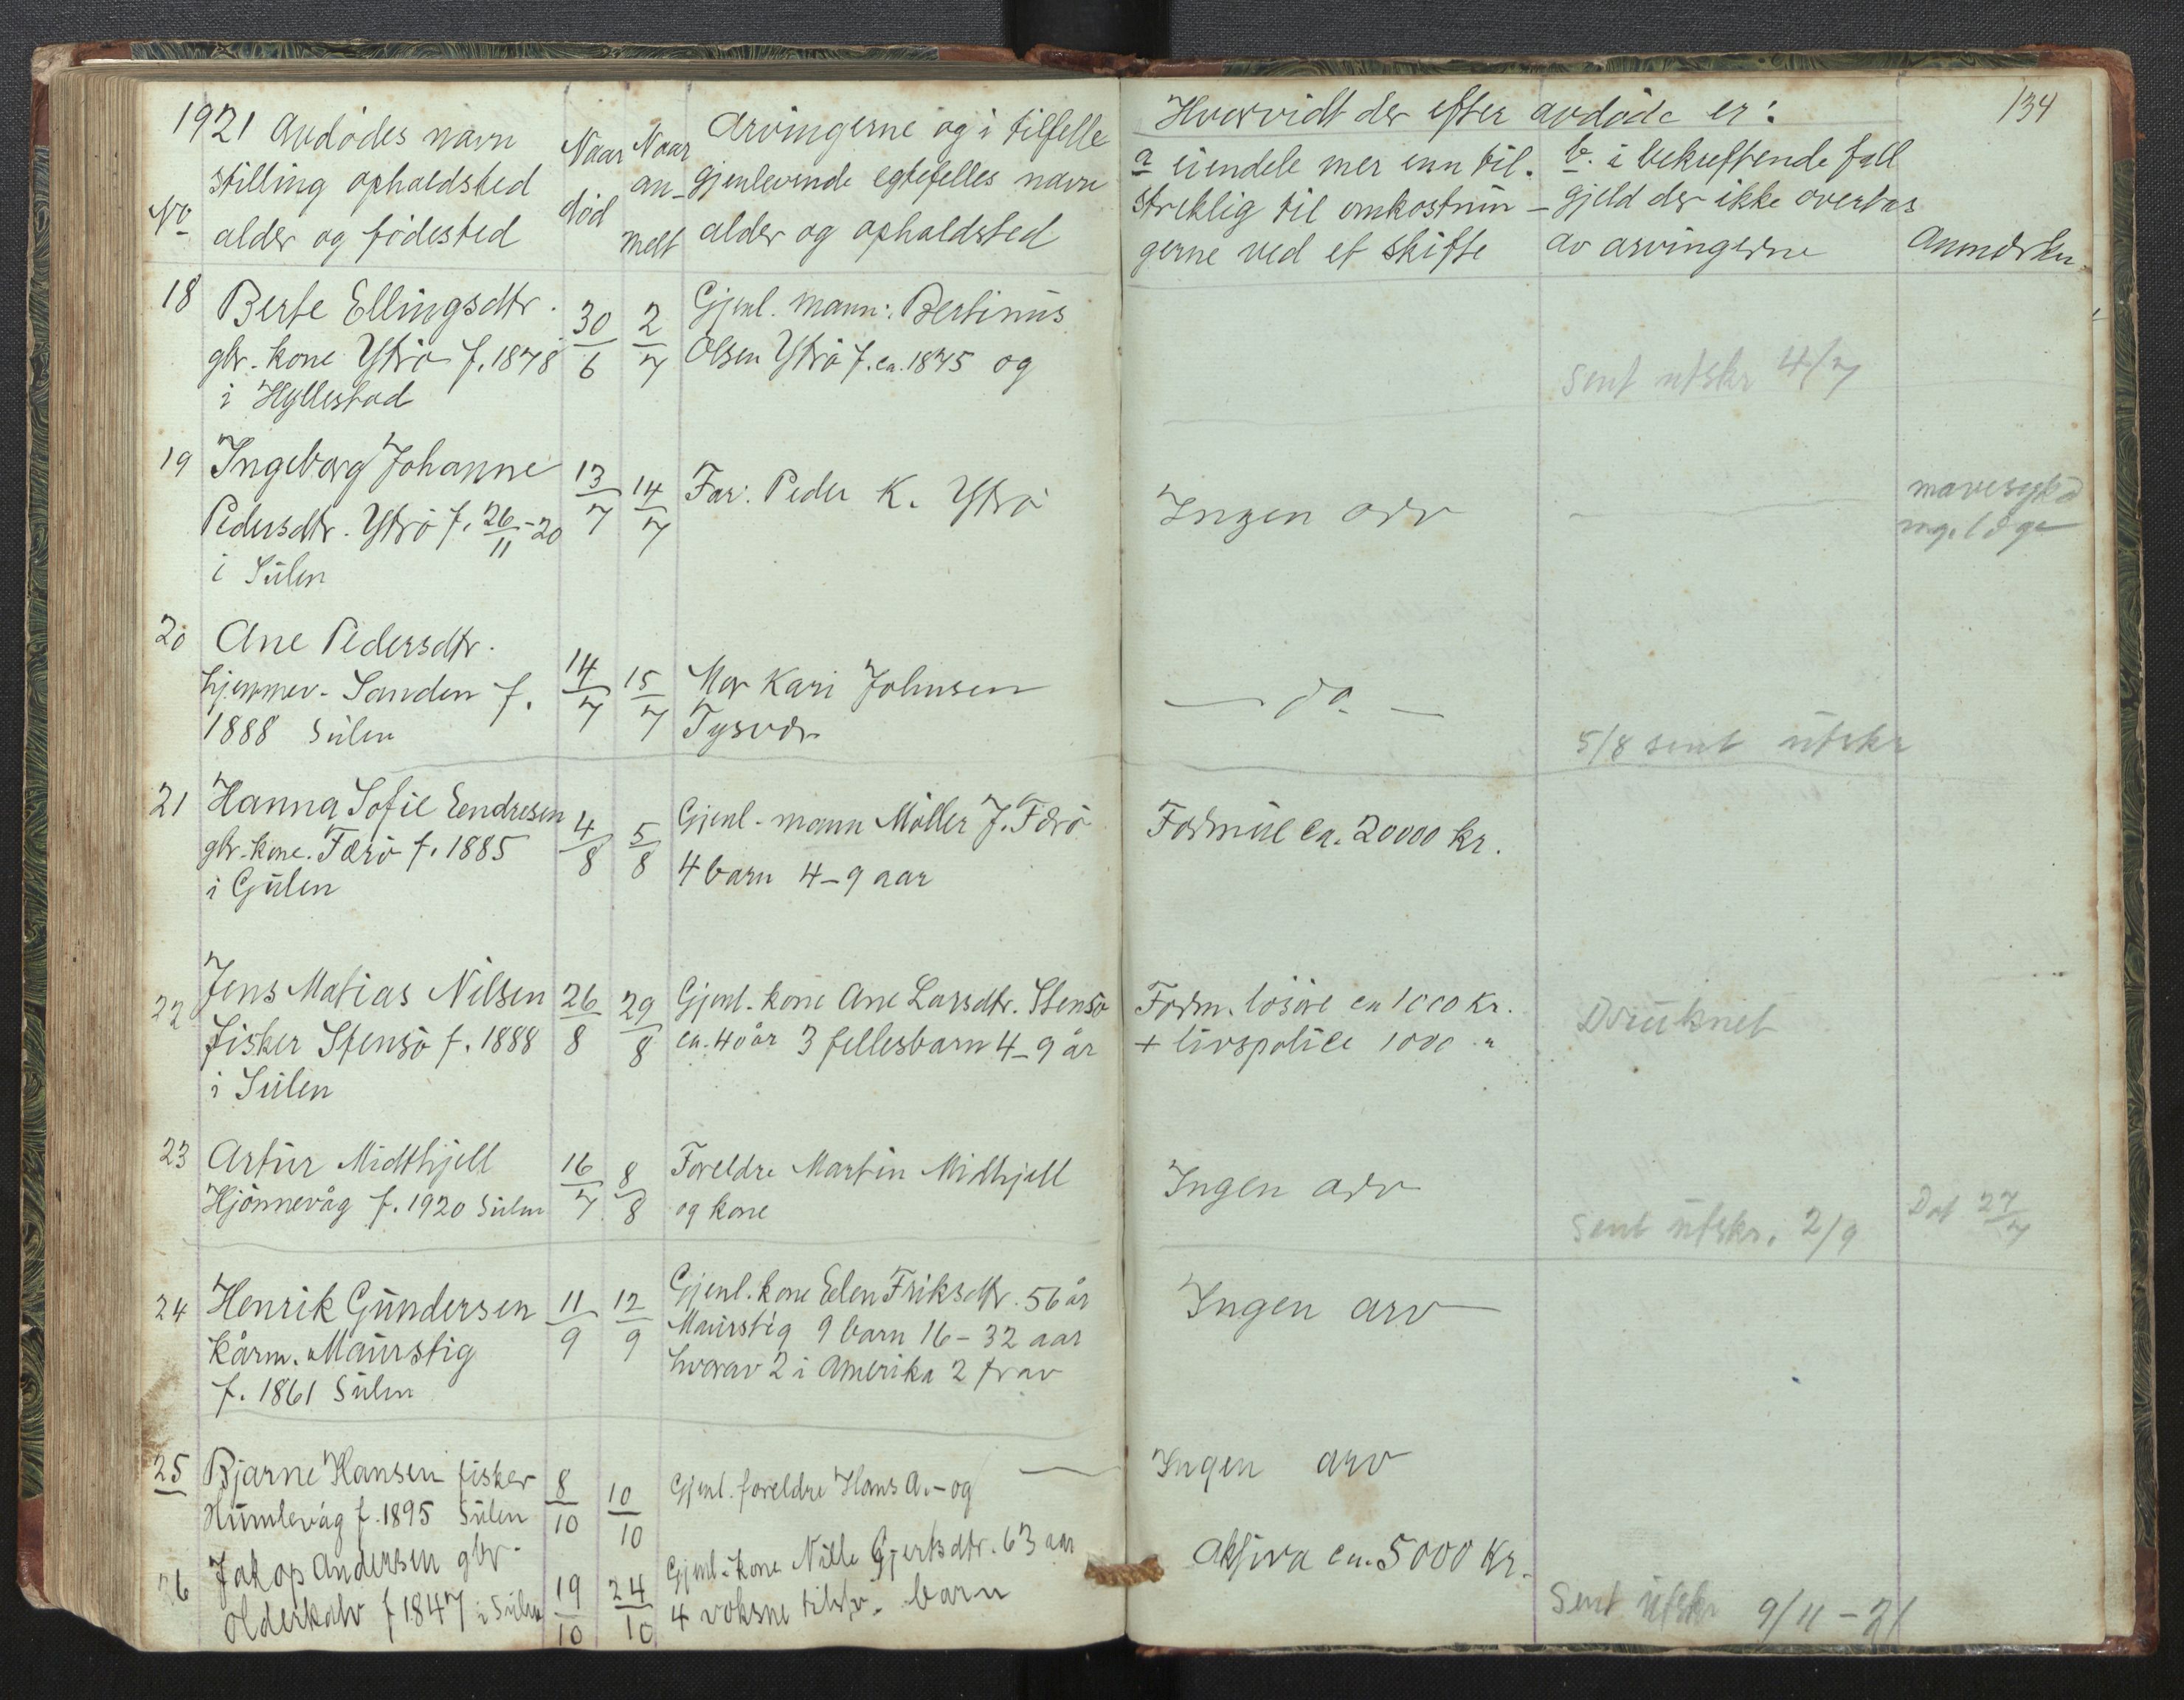 134
1921 Avdødes navn
stilling opholdsted
No alder og fødested
Naar
død
Naar
an-
meldt
Arvingerne og i tilfelle
gjenlevende egtefelles navn
alder og opholdsted
Hvorvidt der efter avdøde er:
a eiendele mer enn til-
streklig til omkostnin-
gerne ved et skifte
b. i bekreftende fall
gjeld der ikke overtas
av arvingerne
Anmerkn.
18 Berte Ellingsdtr.
gbr.-kone Ytrö f. 1878
i Hyllestad
30/6 2/7
Gjenl. mann: Bertinus
Olsen Ytrö f. ca. 1875 og
Sent utskr 4/7
19 Ingeborg Johanne
Pedersdtr. Ytrö f. 26/11-20
i Sulen
13/7 14/7
Far: Peder K. Ytrö
Ingen arv
20 Ane Pedersdtr.
hjemmev. Sanden f.
1888 Sulen
14/7 15/7
Mor Kari Johnsen
Tysvær
— do —
5/8 sent utskr
21 Hanna Sofie Eendresen
gbr.-kone. Færö f. 1885
i Gulen
4/8 5/8
Gjenl. mann Möller J. Færö
4 barn 4-9 aar
Formue ca. 20000 kr.
22 Jens Matias Nilsen
fisker Stensö f. 1888
i Sulen
26/8 29/8
Gjenl. kone Ane Larsdtr. Stensö
ca. 40 år 3 fellesbarn 4-9 år
Form. lösöre ca 1000 Kr.
+ livspolice 1000 "
Druknet
23 Artur Midthjell
Hjönnevåg f. 1920 Sulen
16/7 8/8
Foreldre Martin Midhjell
og kone
Ingen arv
Sent utskr. 2/9
Dat 27/7
24 Henrik Gundersen
kårm. Maurstig
f. 1861 Sulen
11/9 12/9
Gjenl. kone Elen Eriksdtr. 56 år
Maurstig 9 barn 16-32 aar
hvorav 2 i Amerika 2 frav
Ingen arv
25 Bjarne Hansen fisker
Humlevåg f. 1895 Sulen
8/10 10/10
Gjenl. foreldre Hans A.- og
Ingen arv
26 Jakop Andersen gbr.
Olderkalv f 1847 i Sulen
19/10 24/10
Gjenl. kone Nille Gjertsdtr. 63 aar
4 voksne barn
Aktiva ca. 5000 Kr.
Sent utskr 9/11-21